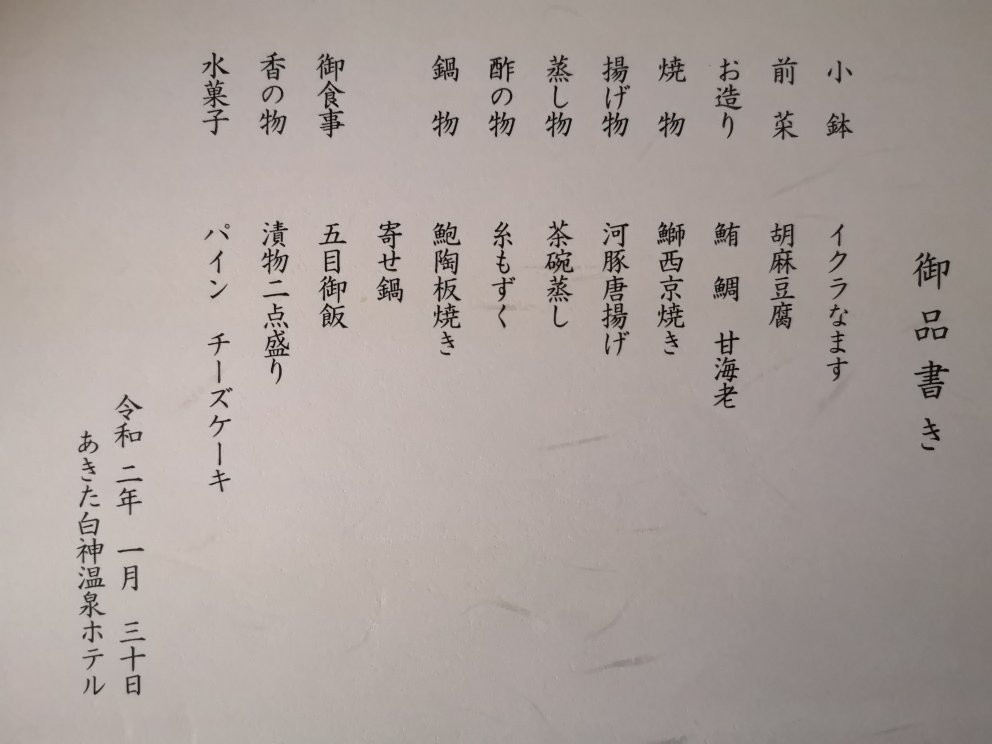 御品書き
小鉢　イクラなます
前菜　胡麻豆腐
お造り　鮪　鯛　甘海老
焼物　鰤西京焼き
揚げ物　河豚唐揚げ
蒸し物　茶碗蒸し
酢の物　糸もずく
鍋物　鮑陶板焼き
寄せ鍋
御食事　五目御飯
香の物　漬物二点盛り
水菓子　パイン　チーズケーキ
令和　二年　一月　三十日
あきた白神温泉ホテル